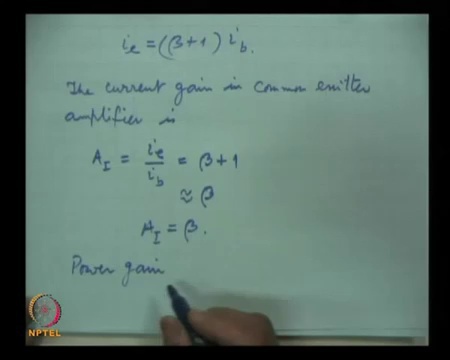 i_e = (β+1) i_b.
The current gain in common emitter
amplifier is
A_I = i_e/i_b = β+1
≈ β
A_I = β.
Power gain
NPTEL